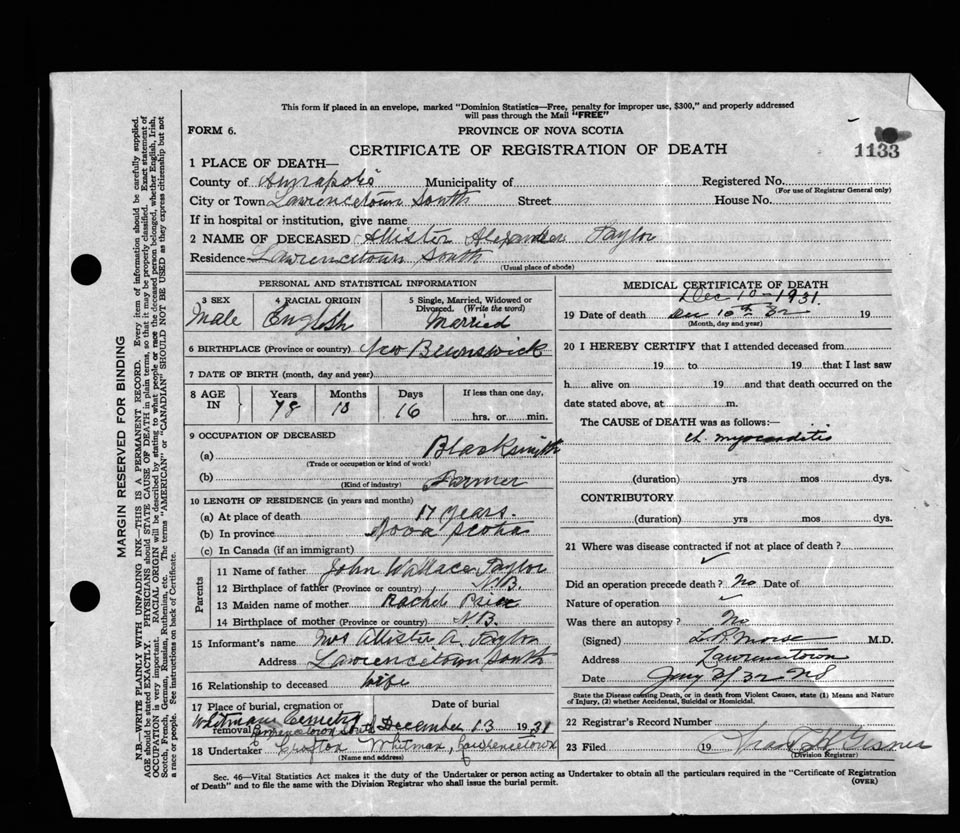 This form if placed in an envelope, marked "Dominion Statistics—Free, penalty for improper use, $300," and properly addressed
will pass through the Mail "FREE"
FORM 6.
PROVINCE OF NOVA SCOTIA
1133
CERTIFICATE OF REGISTRATION OF DEATH
1 PLACE OF DEATH—
County of Annapolis Municipality of Registered No.
(For use of Registrar General only)
City or Town Lawrencetown South Street House No.
If in hospital or institution, give name
2 NAME OF DECEASED Allister Alexander Taylor
Residence Lawrencetown South
(Usual place of abode)
PERSONAL AND STATISTICAL INFORMATION
3 SEX 4 RACIAL ORIGIN 5 Single, Married, Widowed or
Divorced. (Write the word)
Male English Married
6 BIRTHPLACE (Province or country) New Brunswick
7 DATE OF BIRTH (month, day and year)
8 AGE IN Years Months Days If less than one day,
78 10 16 hrs. or min.
9 OCCUPATION OF DECEASED
(a) Blacksmith
(Trade or occupation or kind of work)
(b) Farmer
(Kind of industry)
10 LENGTH OF RESIDENCE (in years and months)
(a) At place of death 17 years.
(b) In province Nova Scotia
(c) In Canada (if an immigrant)
Parents
11 Name of father John Wallace Taylor
12 Birthplace of father (Province or country) N.B.
13 Maiden name of mother Rachel Price
14 Birthplace of mother (Province or country) N.B.
15 Informant's name Mrs Allister A. Taylor
Address Lawrencetown South
16 Relationship to deceased Wife
17 Place of burial, cremation or Date of burial
Whitman Cemetry
removal Lawrencetown South December 13 1931
18 Undertaker Crofton Whitman, Lawrencetown
(Name and address)
MEDICAL CERTIFICATE OF DEATH
Dec 10—1931.
19 Date of death Dec 10th 32 19
(Month, day and year)
20 I HEREBY CERTIFY that I attended deceased from
19 to 19 that I last saw
h alive on 19 and that death occurred on the
date stated above, at m.
The CAUSE of DEATH was as follows:—
ch. myocarditis
(duration) yrs mos dys.
CONTRIBUTORY
(duration) yrs mos dys.
21 Where was disease contracted if not at place of death?
Did an operation precede death? No Date of
Nature of operation
Was there an autopsy? No
(Signed) L.R. Morse M.D.
Address Lawrencetown
Date Jany 2/32 NS
State the Disease causing Death, or in death from Violent Causes, state (1) Means and Nature
of Injury, (2) whether Accidental, Suicidal or Homicidal.
22 Registrar's Record Number
23 Filed (19 Gesner
(Division Registrar)
Sec. 46—Vital Statistics Act makes it the duty of the Undertaker or person acting as Undertaker to obtain all the particulars required in the "Certificate of Registration
of Death" and to file the same with the Division Registrar who shall issue the burial permit.
(OVER)
MARGIN RESERVED FOR BINDING
N.B.—WRITE PLAINLY WITH UNFADING INK—THIS IS A PERMANENT RECORD. Every item of information should be carefully supplied.
AGE should be stated EXACTLY. PHYSICIANS should STATE CAUSE OF DEATH in plain terms, so that it may be properly classified. Exact statement of
OCCUPATION is very important. RACIAL ORIGIN will be described by stating to what people or race the deceased person belonged, whether English, Irish,
Scotch, French, German, Russian, Ruthenian, etc. The terms "AMERICAN" or "CANADIAN" SHOULD NOT BE USED as they express citizenship but not
a race or people. See instructions on back of Certificate.